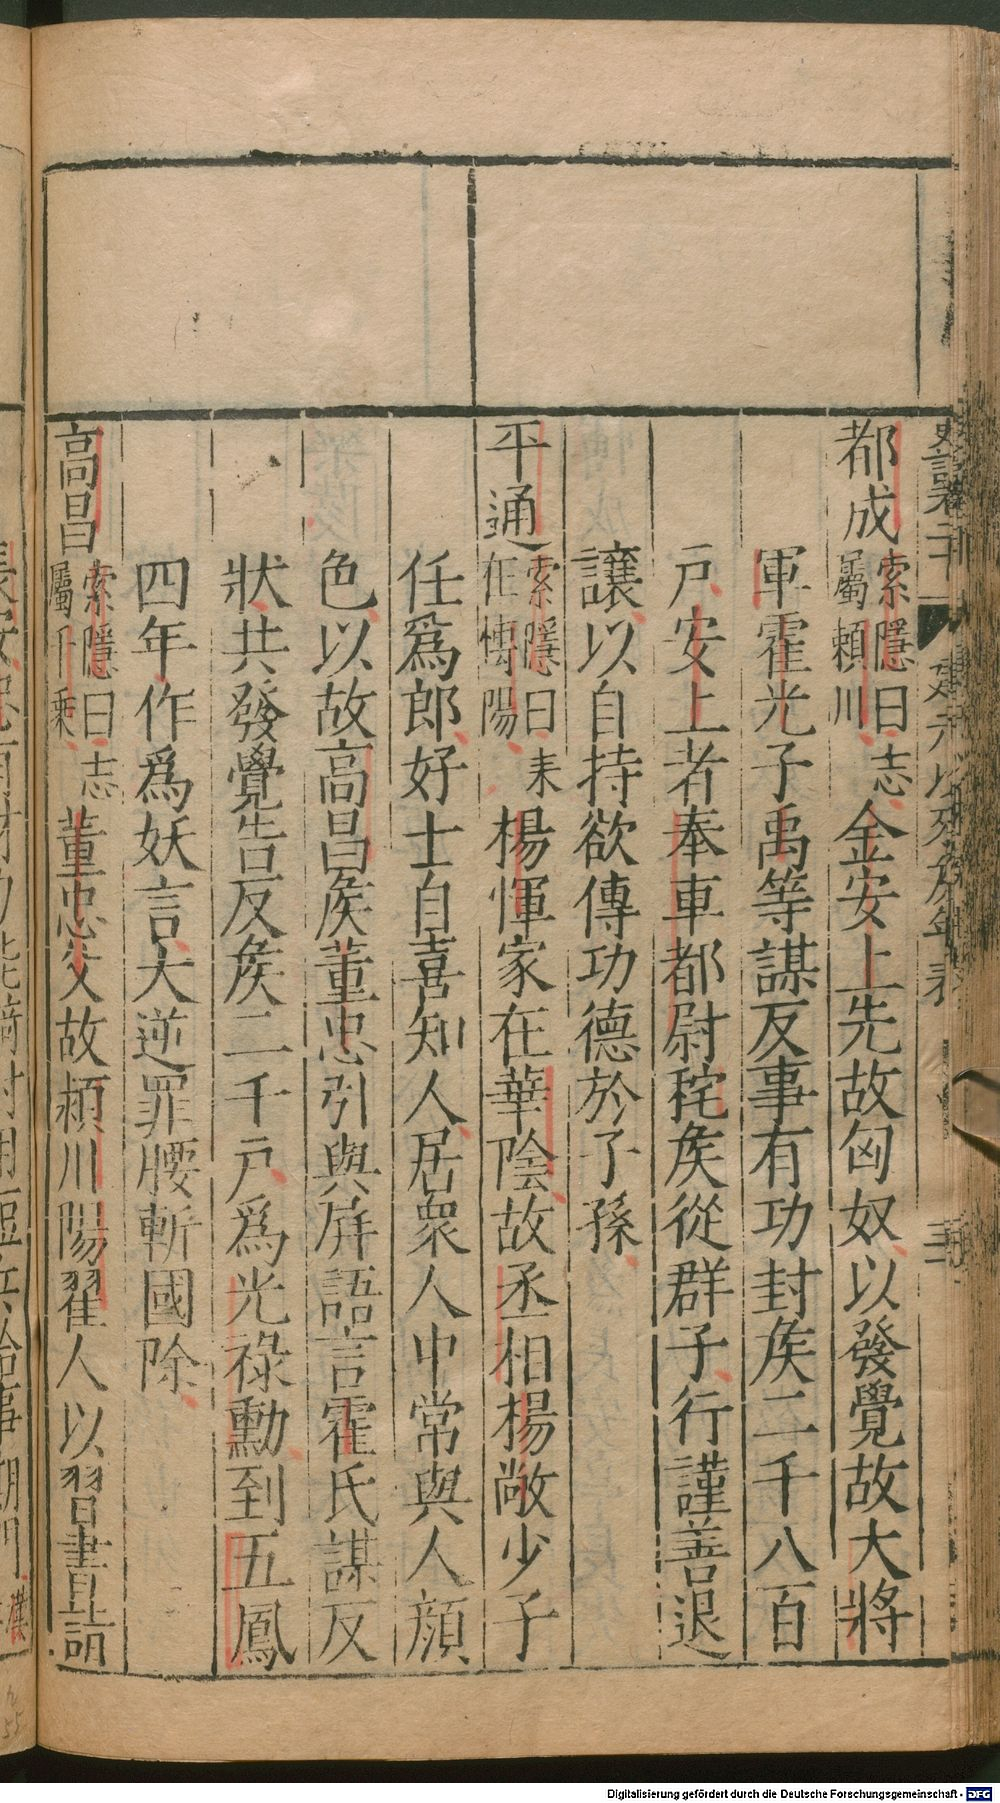 都成索隱曰志屬頴川金安上先故匈奴以發覺故大將
軍霍光子禹等謀反事有功封矦二千八百
戶安上者奉車都尉秺矦從群子行謹善退
讓以自持欲傳功德於子孫
平通索隱曰表在博陽楊惲家在華陰故丞相楊敞少子
任爲郎好士自喜知人居衆人中常與人顔
色以故高昌矦董忠引與屏語言霍氏謀反
狀共發覺告反矦二千戶爲光祿勳到五鳳
四年作爲妖言大逆罪腰斬國除
高昌索隱曰志屬千乘董忠父故頴川陽翟人以習書詣
Digitalisierung gefördert durch die Deutsche Forschungsgemeinschaft - DFG